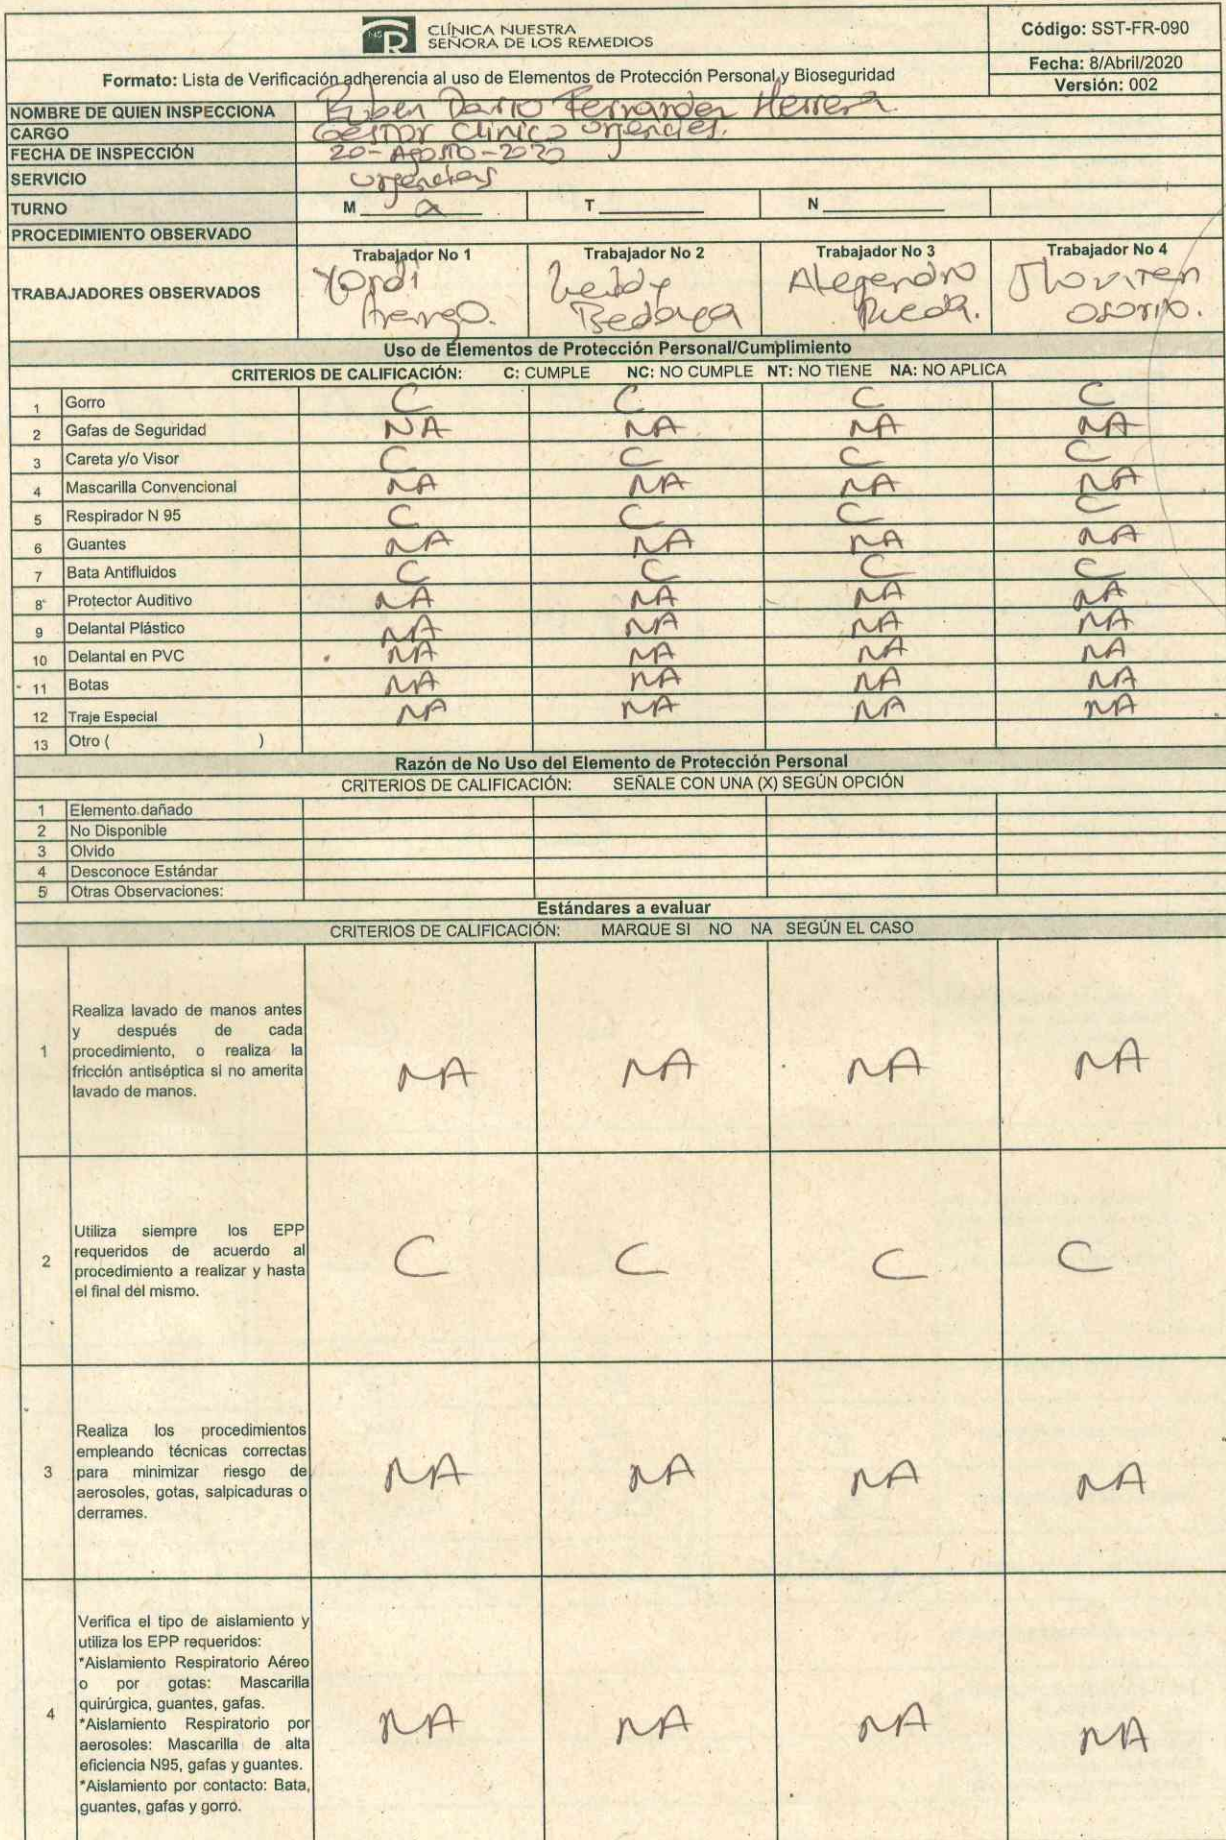 CLÍNICA NUESTRA
SEÑORA DE LOS REMEDIOS
Código: SST-FR-090
Formato: Lista de Verificación adherencia al uso de Elementos de Protección Personal y Bioseguridad
Fecha: 8/Abril/2020
Versión: 002
NOMBRE DE QUIEN INSPECCIONA Ruben Dario Fernandez Herrera
CARGO Gestor Clinico urgencias.
FECHA DE INSPECCIÓN 20-Agosto-2020
SERVICIO urgencias
TURNO M T N
PROCEDIMIENTO OBSERVADO
TRABAJADORES OBSERVADOS
Trabajador No 1 Trabajador No 2 Trabajador No 3 Trabajador No 4
Yordi Leidy Alejandro
Bedoya Rueda. Osorio.
Uso de Elementos de Protección Personal/Cumplimiento
CRITERIOS DE CALIFICACIÓN: C: CUMPLE NC: NO CUMPLE NT: NO TIENE NA: NO APLICA
1 Gorro C C C C
2 Gafas de Seguridad NA NA NA NA
3 Careta y/o Visor C C C C
4 Mascarilla Convencional NA NA NA NA
5 Respirador N 95 C C C C
6 Guantes NA NA NA NA
7 Bata Antifluidos C C C C
8 Protector Auditivo NA NA NA NA
9 Delantal Plástico NA NA NA NA
10 Delantal en PVC NA NA NA NA
11 Botas NA NA NA NA
12 Traje Especial NA NA NA NA
13 Otro ( )
Razón de No Uso del Elemento de Protección Personal
CRITERIOS DE CALIFICACIÓN: SEÑALE CON UNA (X) SEGÚN OPCIÓN
1 Elemento dañado
2 No Disponible
3 Olvido
4 Desconoce Estándar
5 Otras Observaciones:
Estándares a evaluar
CRITERIOS DE CALIFICACIÓN: MARQUE SI NO NA SEGÚN EL CASO
Realiza lavado de manos antes
y después de cada
1 procedimiento, o realiza la
fricción antiséptica si no amerita
lavado de manos.
NA NA NA NA
Utiliza siempre los EPP
requeridos de acuerdo al
2 procedimiento a realizar y hasta
el final del mismo.
C C C C
Realiza los procedimientos
empleando técnicas correctas
3 para minimizar riesgo de
aerosoles, gotas, salpicaduras o
derrames.
NA NA NA NA
Verifica el tipo de aislamiento y
utiliza los EPP requeridos:
*Aislamiento Respiratorio Aéreo
o por gotas: Mascarilla
quirúrgica, guantes, gafas.
4 *Aislamiento Respiratorio por
aerosoles: Mascarilla de alta
eficiencia N95, gafas y guantes.
*Aislamiento por contacto: Bata,
guantes, gafas y gorro.
NA NA NA NA